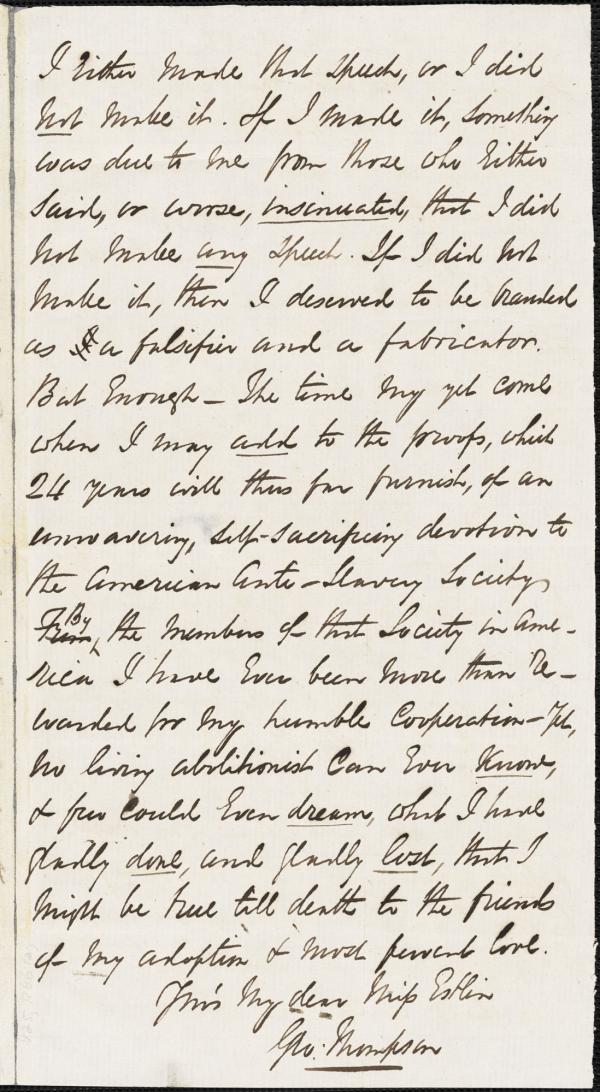 I either made that speech, or I did
not make it. If I made it, something
was due to me from those who either
said, or worse, insinuated, that I did
not make any speech. If I did not
make it, then I deserved to be branded
as a falsifier and a fabricator.
But enough – The time my yet come
when I may add to the proofs, which
24 years will thus far furnish, of an
unwavering, self-sacrificing devotion to
the American Anti-Slavery Society,
From By the members of that Society in Ame-
rica I have ever been more than re-
warded for my humble cooperation – Yet,
no living abolitionist can ever know,
& few could even dream, what I have
gladly done, and gladly lost, that I
might be true till death to the friends
of my adoption & most fervent love.
Yours my dear Miss Estlin
Geo: Thompson